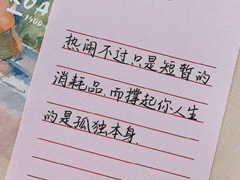 热闹不过只是短暂的
消耗品,而撑起你人生
的是孤独本身